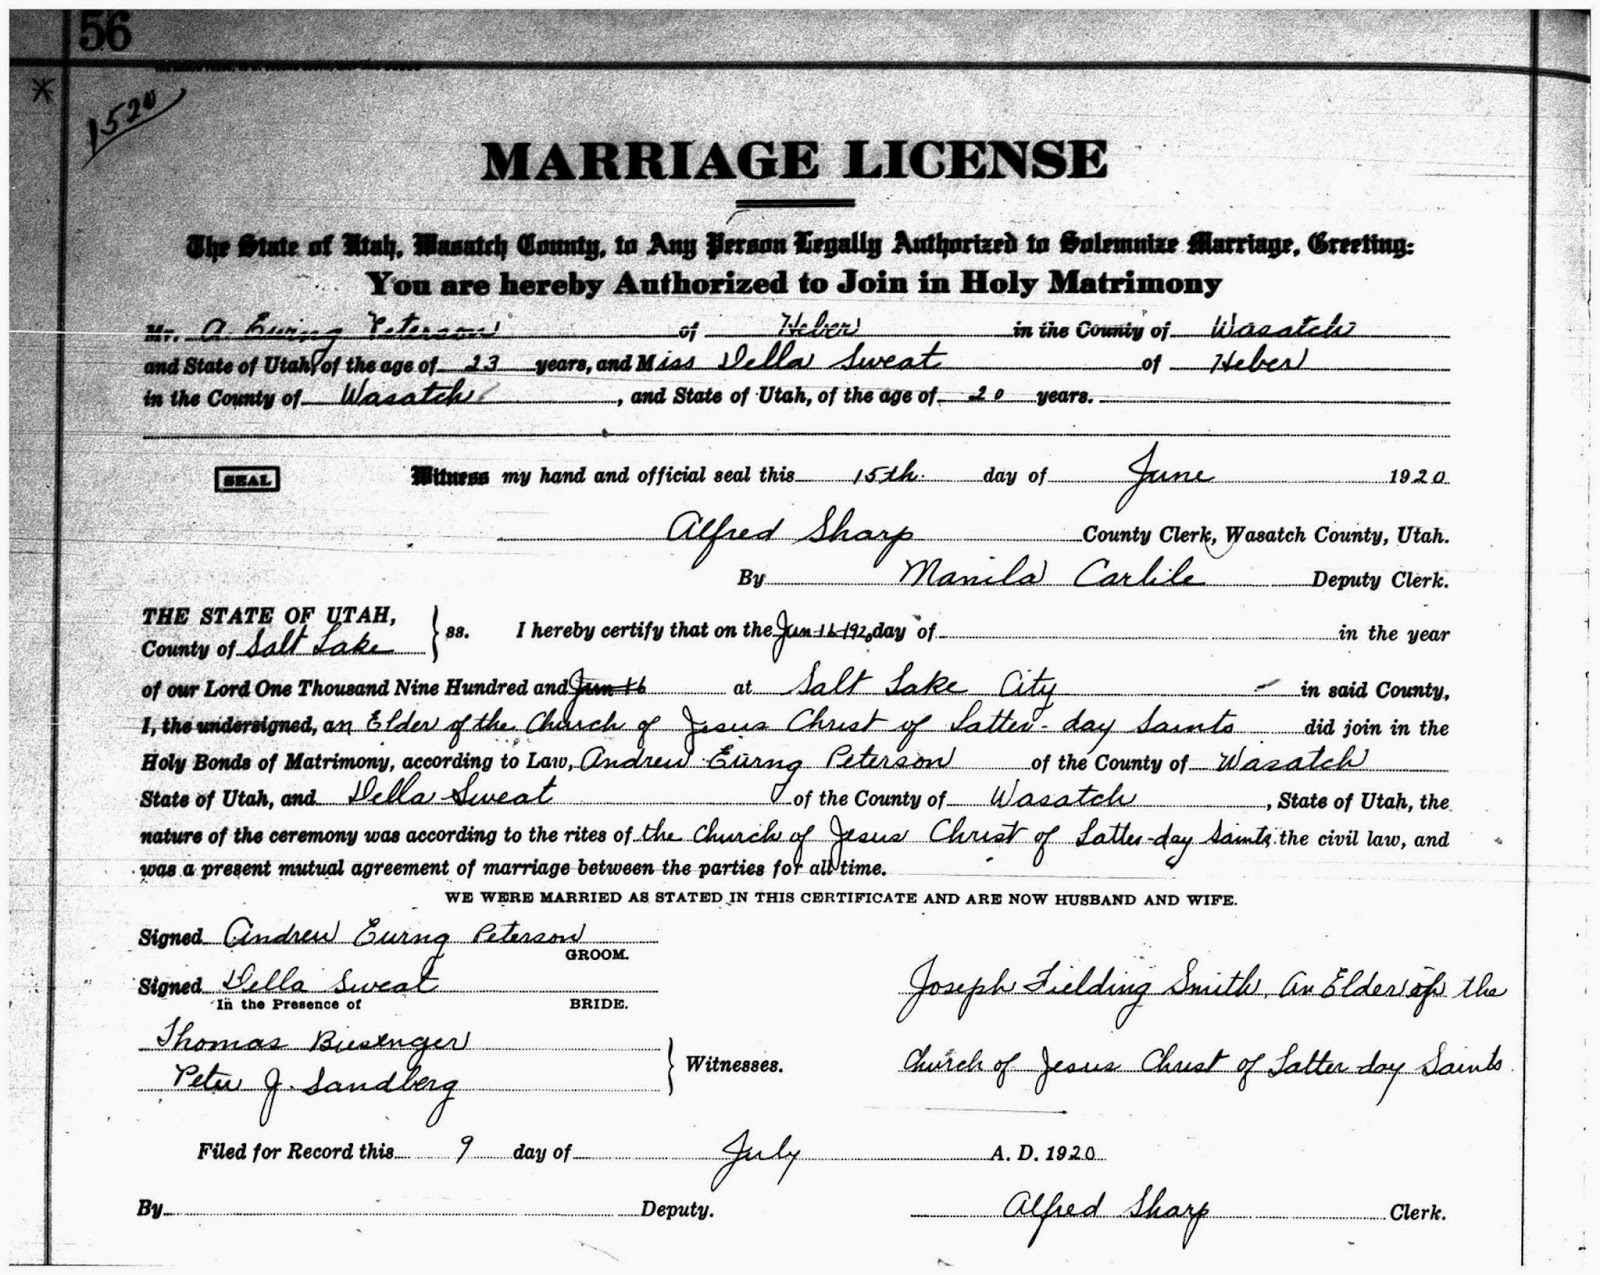 56
*
1520
MARRIAGE LICENSE
The State of Utah, Wasatch County, to Any Person Legally Authorized to Solemnize Marriage, Greeting:
You are hereby Authorized to Join in Holy Matrimony
Mr. A. Eurng Peterson of Heber in the County of Wasatch
and State of Utah, of the age of 23 years, and Miss Della Sweat of Heber
in the County of Wasatch, and State of Utah, of the age of 20 years.
SEAL Witness my hand and official seal this 15th day of June 1920
Alfred Sharp County Clerk, Wasatch County, Utah.
By Manila Carlile Deputy Clerk.
THE STATE OF UTAH,
County of Salt Lake } ss. I hereby certify that on the Jun 16 1920 day of in the year
of our Lord One Thousand Nine Hundred and Jun 16 at Salt Lake City in said County,
I, the undersigned, an Elder of the Church of Jesus Christ of Latter-day Saints did join in the
Holy Bonds of Matrimony, according to Law, Andrew Eurng Peterson of the County of Wasatch
State of Utah, and Della Sweat of the County of Wasatch, State of Utah, the
nature of the ceremony was according to the rites of the Church of Jesus Christ of Latter-day Saints, the civil law, and
was a present mutual agreement of marriage between the parties for all time.
WE WERE MARRIED AS STATED IN THIS CERTIFICATE AND ARE NOW HUSBAND AND WIFE.
Signed Andrew Eurng Peterson
GROOM.
Signed Della Sweat
In the Presence of BRIDE.
Joseph Fielding Smith, An Elder of the
Church of Jesus Christ of Latter-day Saints
Thomas Biesenger
Peter J. Sandberg } Witnesses.
Filed for Record this 9 day of July A. D. 1920
By Deputy. Alfred Sharp Clerk.